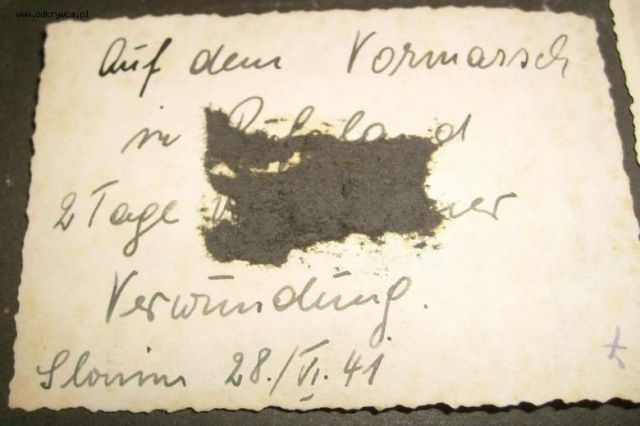 www.odkrywca.pl
Auf dem Vormarsch
in Rußland
2 Tage
Verwundung.
Slonim 28./VI.41